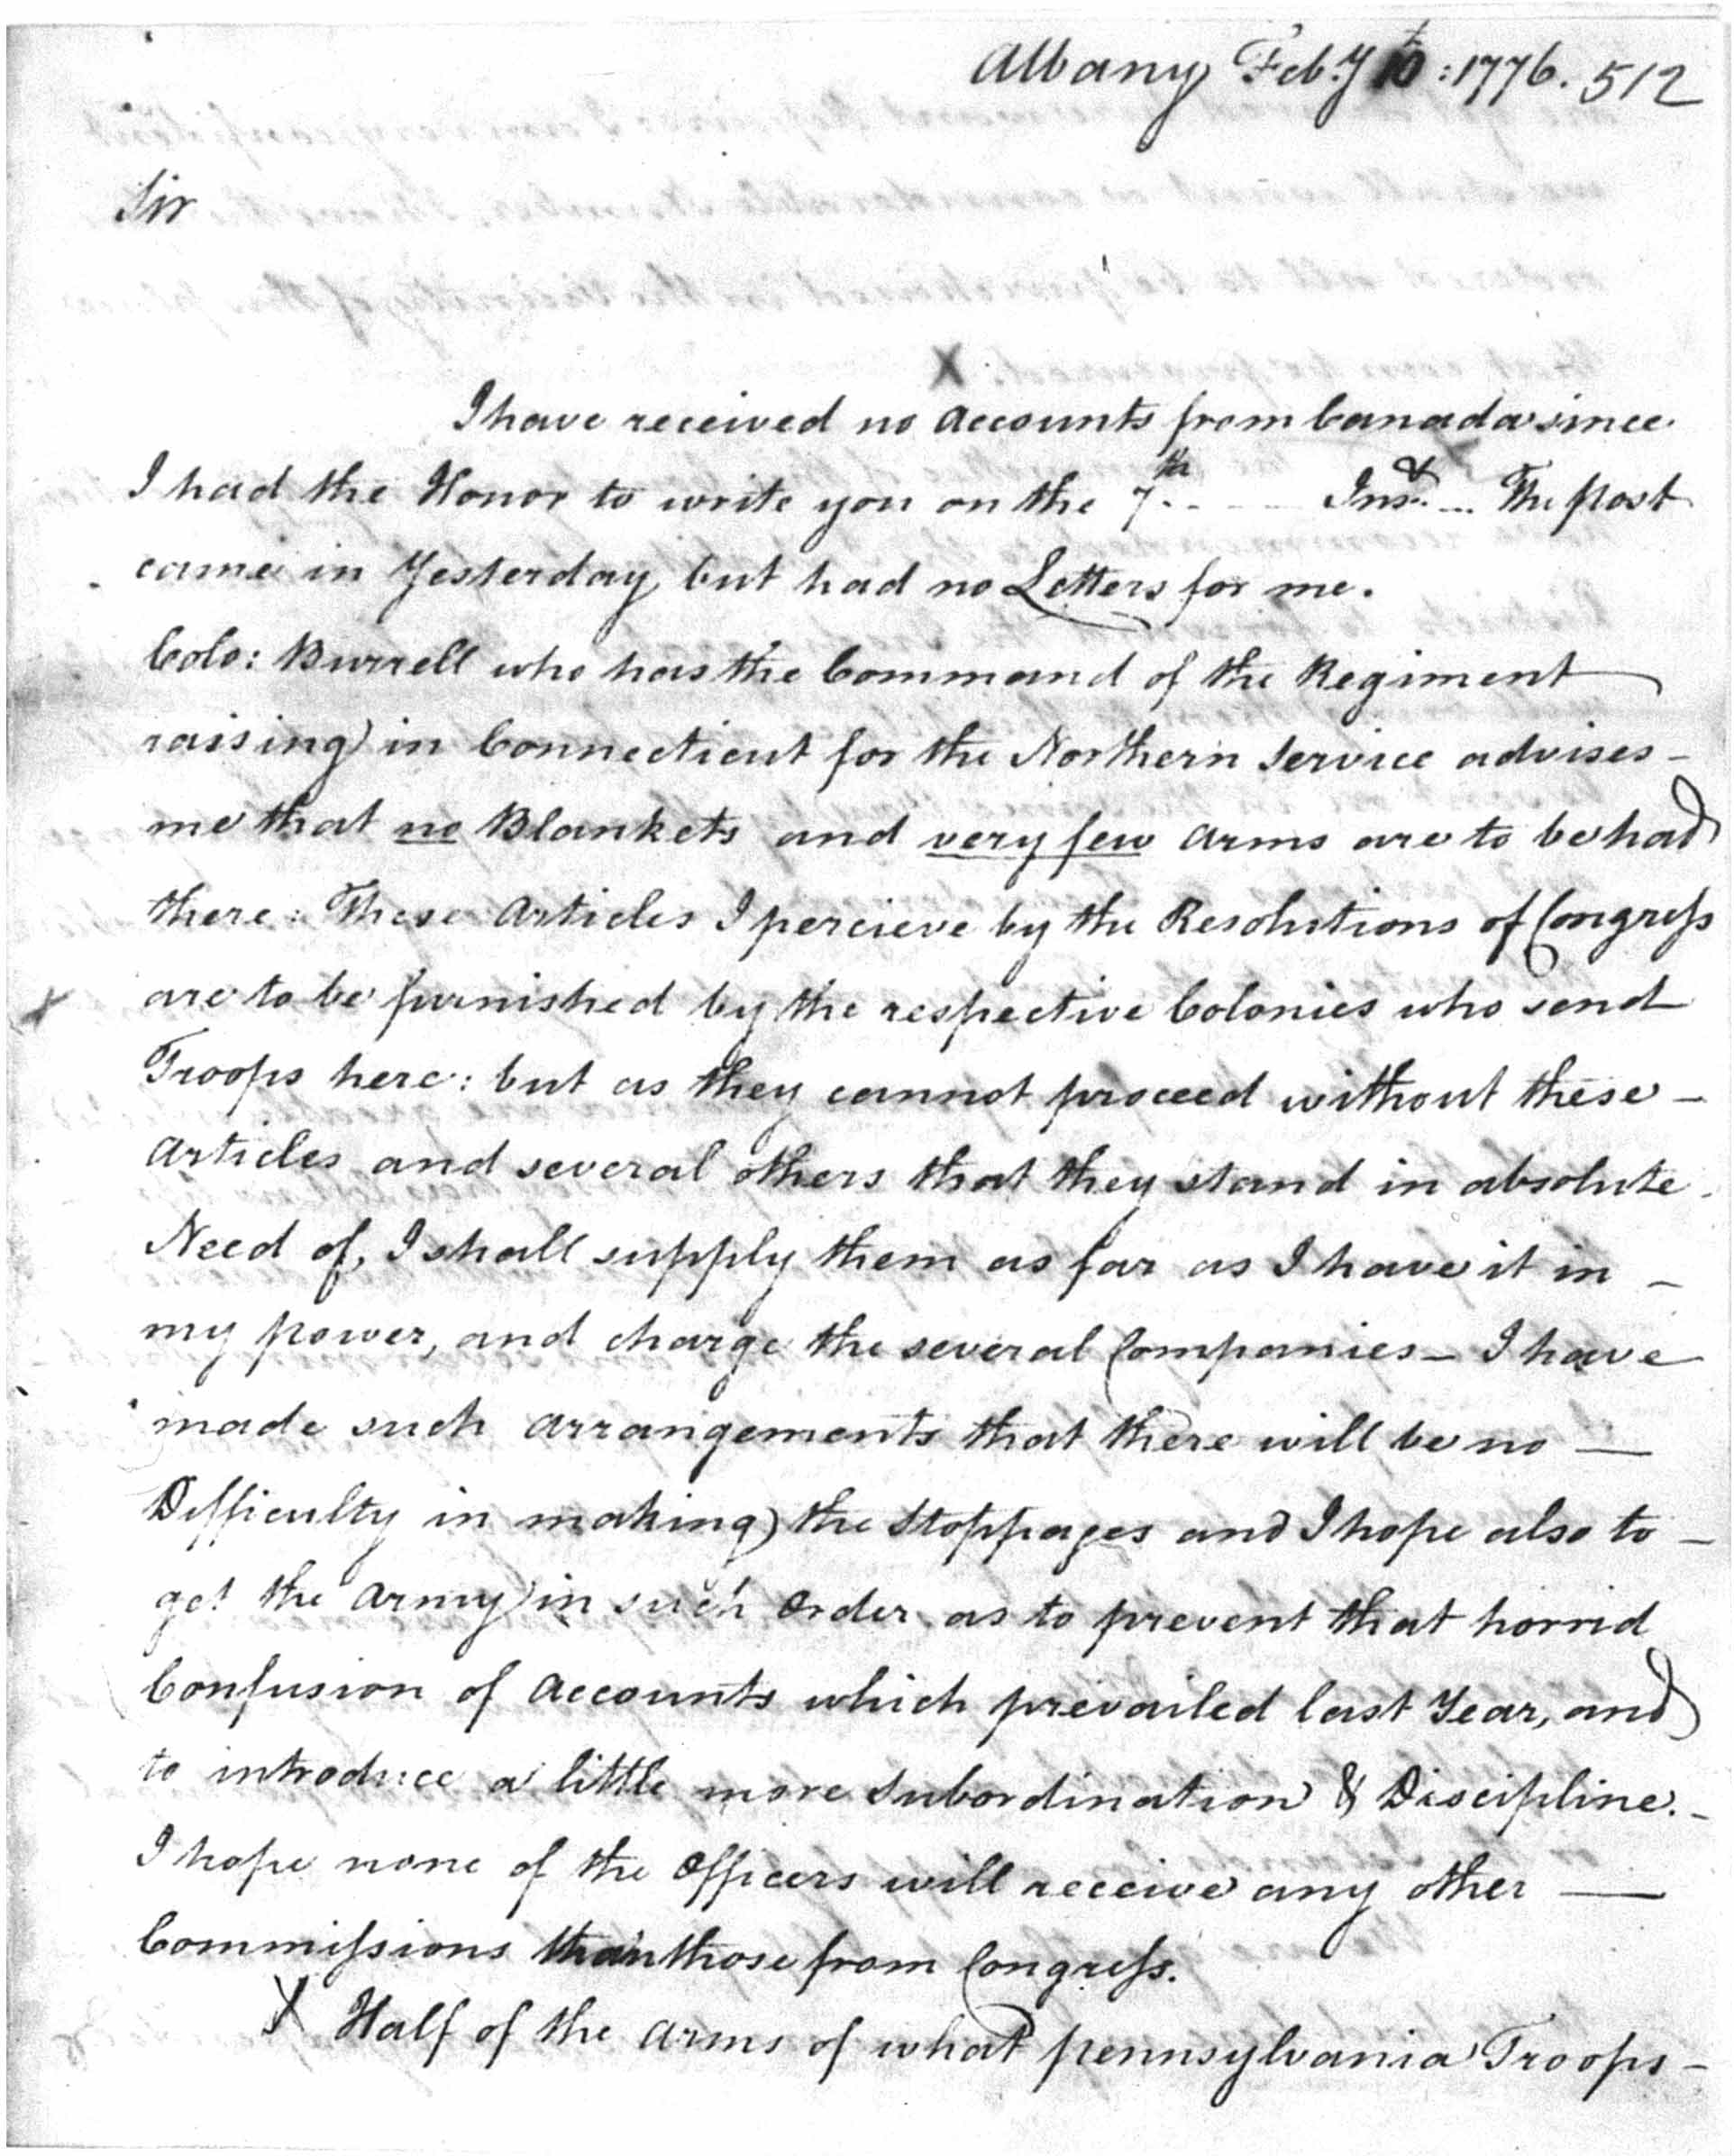 Albany Feb.y 10t : 1776. 512
Sir
X
I have received no Accounts from Canada since
I had the Honor to write you on the 7.th - - - Inst. ... The post
came in Yesterday, but had no Letters for me.
Colo: Burrell who has the Command of the Regiment
raising in Connecticut for the Northern Service advises -
me that no Blankets and very few Arms are to be had
there: These Articles I percieve by the Resolutions of Congress
X are to be furnished by the respective Colonies who send
Troops here: but as they cannot proceed without these -
Articles and several others that they stand in absolute
Need of, I shall supply them as far as I have it in -
my power, and charge the several Companies - I have
made such Arrangements that there will be no —
Difficulty in making the Stoppages and I hope also to -
get the Army in such Order as to prevent that horrid
Confusion of Accounts which prevailed last Year, and
to introduce a little more Subordination & Discipline. -
I hope none of the Officers will receive any other —
Commissions than those from Congress.
X Half of the Arms of what pennsylvania Troops -